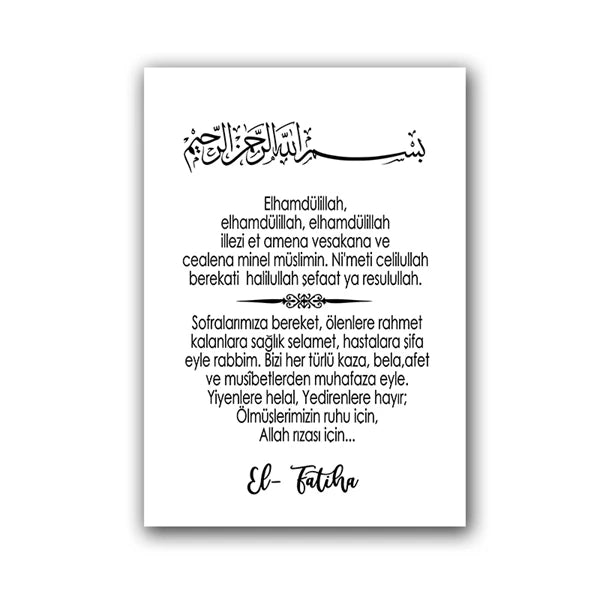 بسم الله الرحمن الرحيم
Elhamdülillah,
elhamdülillah, elhamdülillah
illezi et amena vesakana ve
cealena minel müslimin. Ni'meti celilullah
berekati halilullah şefaat ya resulullah.
Sofralarımıza bereket, ölenlere rahmet
kalanlara sağlık selamet, hastalara şifa
eyle rabbim. Bizi her türlü kaza, bela,afet
ve musîbetlerden muhafaza eyle.
Yiyenlere helal, Yedirenlere hayır;
Ölmüşlerimizin ruhu için,
Allah rızası için...
El- Fatiha